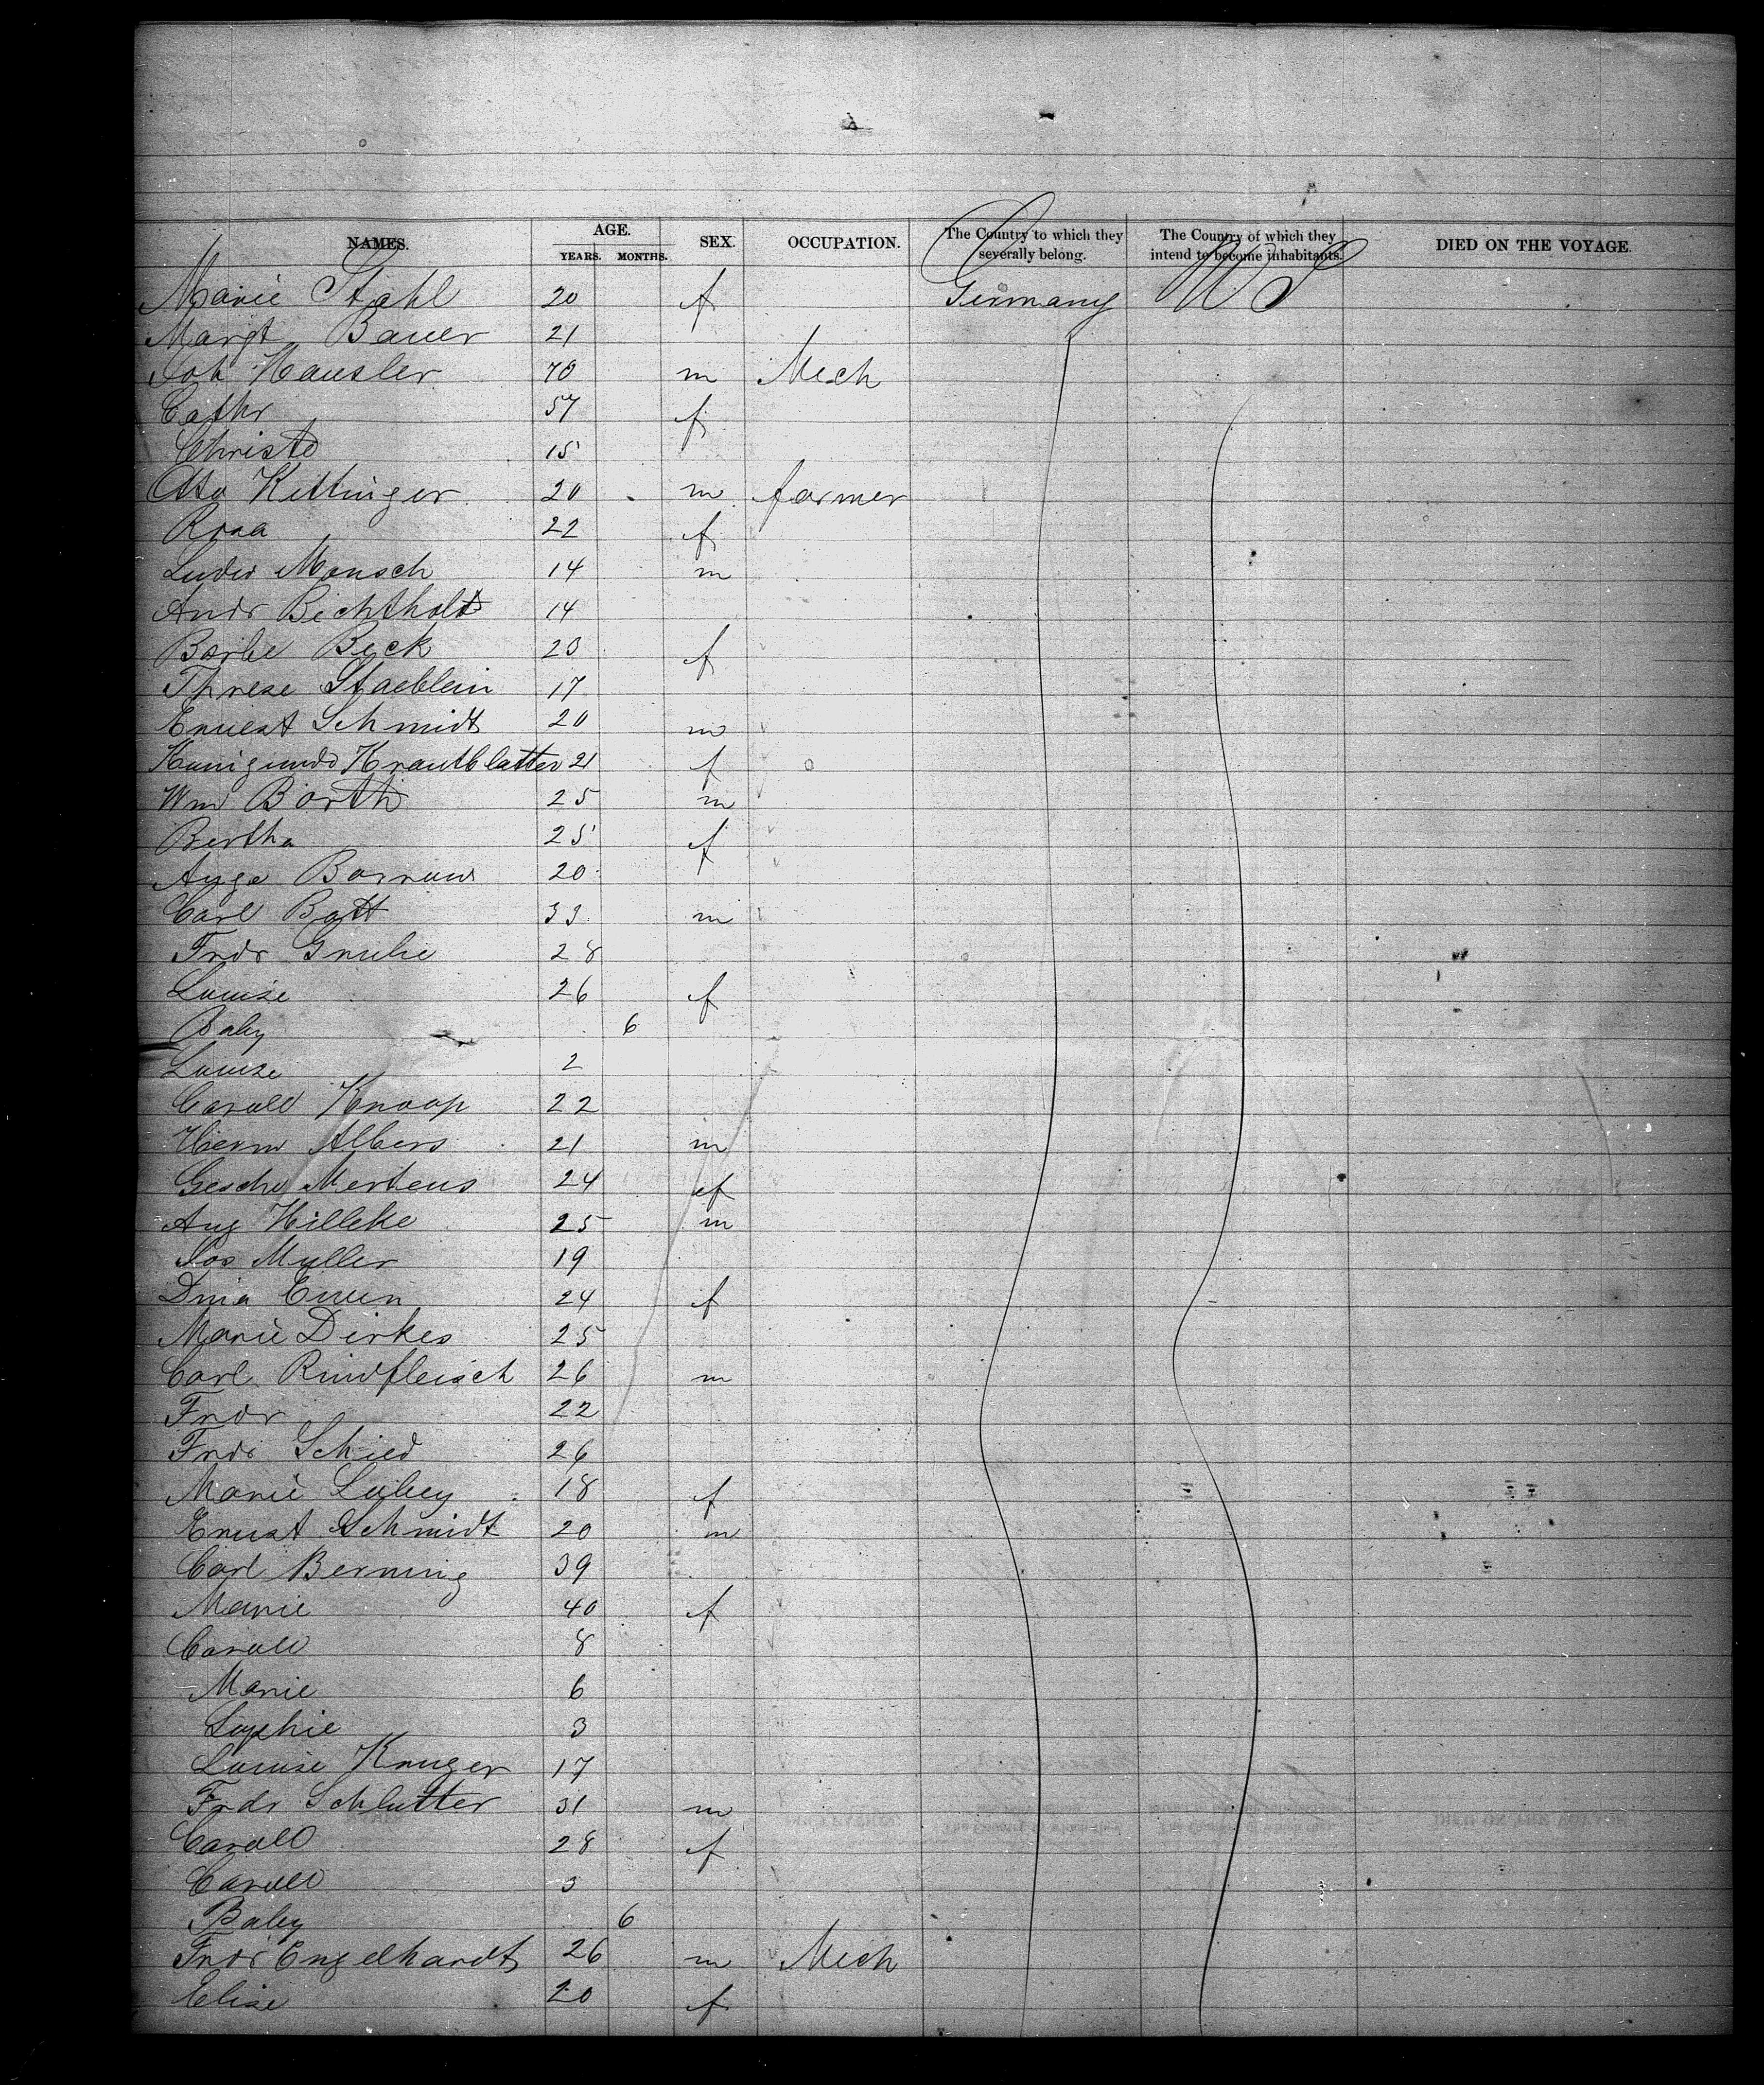 NAMES. AGE. SEX. OCCUPATION. The Country to which they severally belong. The Country of which they intend to become inhabitants. DIED ON THE VOYAGE.
YEARS. MONTHS.
Marie Stahl 20 f Germany U S
Margt Bauer 21
Joh Hausler 70 m Mech
Cathr 57 f
Christe 15
Otto Kettinger 20 m farmer
Rosa 22 f
Ludw Monsch 14 m
Andr Bechtholdt 14
Barbe Beck 23 f
Threse Staeblein 17
Ernest Schmidt 20 m
Kunigunde Krautblatter 21 f
Wm Barth 25 m
Bertha 25 f
Auge 20
Carl Bott 33 m
Frdr 28
Louise 26 f
Baby 6
Louise 2
Caroll Knoop 22
Herm Albers 21 m
Gesche Mertens 24 f
Aug Hilleke 25 m
Jos Muller 19
Dina 24 f
Marie Dirkes 25
Carl Rindfleisch 26 m
Frdr 22
Frdr Schied 26
Marie 18 f
Ernst Schmidt 20 m
Carl Berning 39
Marie 40 f
Caroll 8
Marie 6
Sophie 3
Louise Kruger 17
Frdr Schlutter 31 m
Caroll 28 f
Caroll 3
Baby 6
Frdr Engelhardt 26 m Mech
Elise 20 f